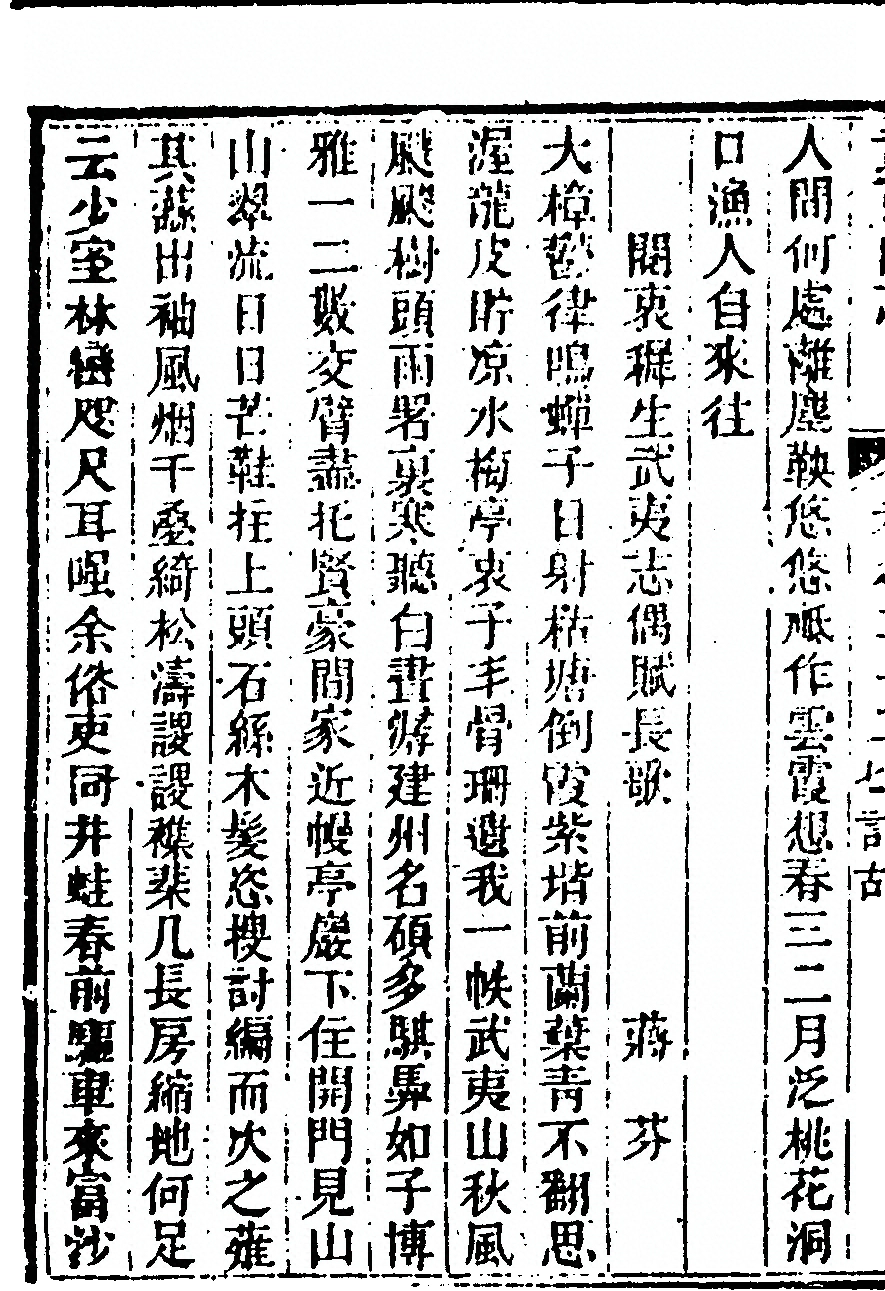 人間何處離塵鞅悠悠祗作雲霞想春三二月泛桃花洞
口漁人自來往
閱衷穉生武夷志偶賦長歌
蔣芬
大樟鬱律鳴蟬子日射枯塘倒霞紫堦前蘭葉青不翻思
渥龍皮貯凉水梅亭衷子丰骨珊遺我一帙武夷山秋風
颼颼樹頭雨署裏寒聽白晝潺建州名碩多騏驥如子博
雅一二數交臂盡托賢豪間家近幔亭巖下住開門見山
山翠流日日芒鞋拄上頭石繇木髮恣搜討編而次之薙
其蕪出袖風烟千疊綺松濤謖謖襍棐几長房縮地何足
云少室林巒咫尺耳嗤余俗吏同井蛙春前驅車來富沙